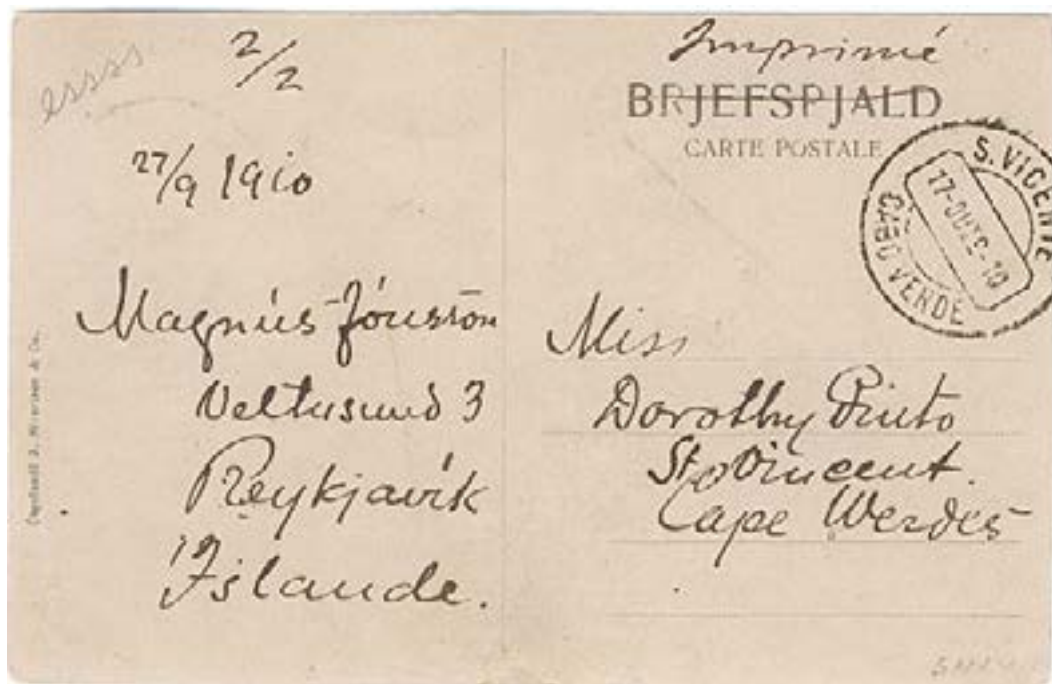 2/2
27/9 1910
Magnús Jónsson
Veltusund 3
Reykjavík
Íslande.
Imprimé
BRJEFSPJALD
CARTE POSTALE
S. VICENTE
17-OUT-10
CABO VERDE
Miss
Dorothy Pinto
St Vincent.
Cape Werdes